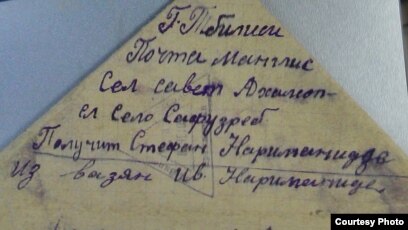 Г. Тбилиси
Почта Манглис
Сел савет Ахалсоп-
ел Село Сафузреб
Получит Стефан Нариманидзе
Из вазян Ив. Нариманидзе
Courtesy Photo